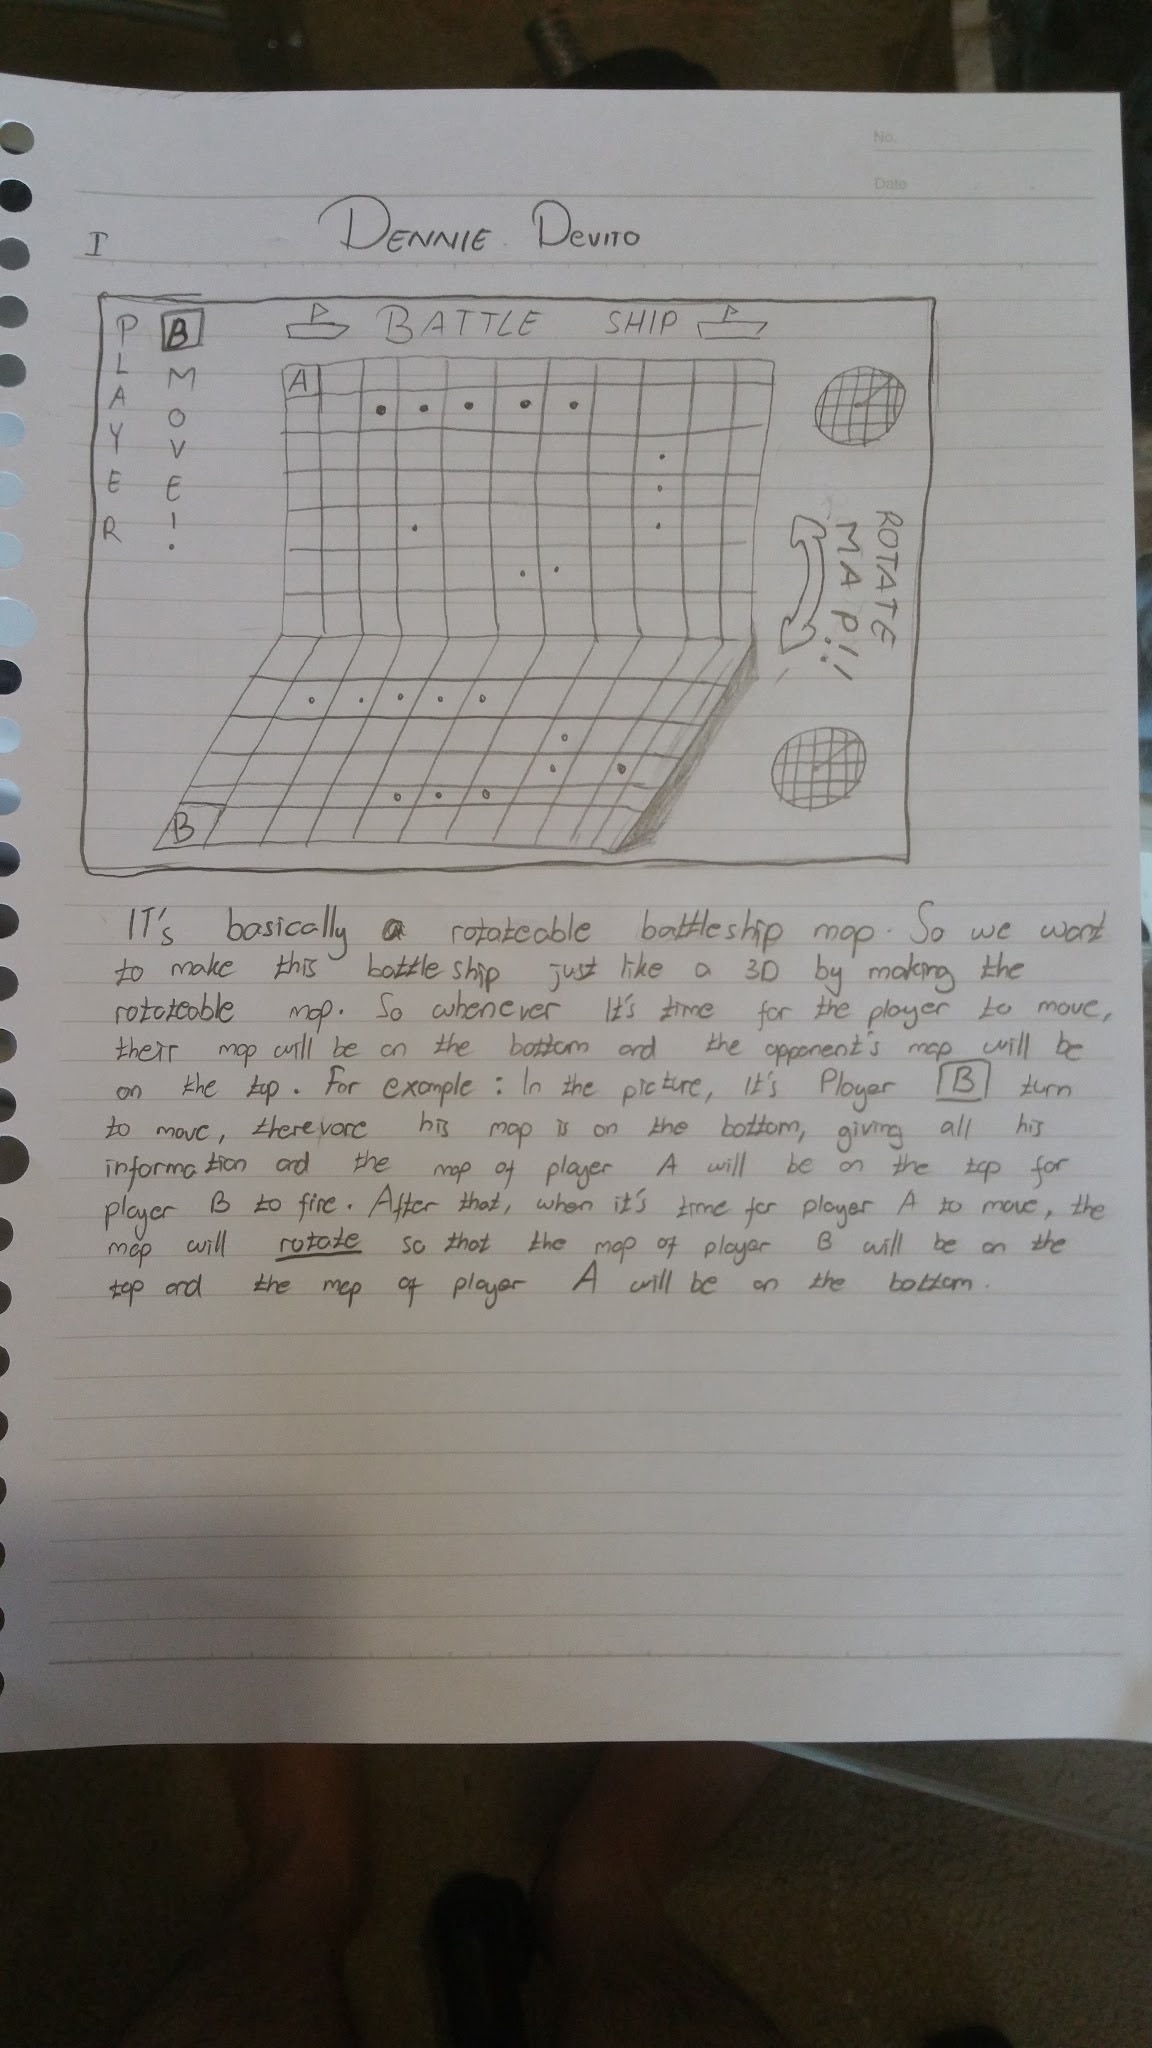 No.
Date
I
DENNIE DEVITO
PLAYER
B MOVE!
BATTLE SHIP
A
ROTATE
MAP!!
B
IT's basically a rotateable battleship map. So we want
to make this battle ship just like a 3D by making the
rotateable map. So whenever It's time for the player to move,
their map will be on the bottom and the opponent's map will be
on the top. For example : In the picture, It's Player B turn
to move, therevore his map is on the bottom, giving all his
information and the map of player A will be on the top for
player B to fire. After that, when it's time for player A to move, the
map will rotate so that the map of player B will be on the
top and the map of player A will be on the bottom.